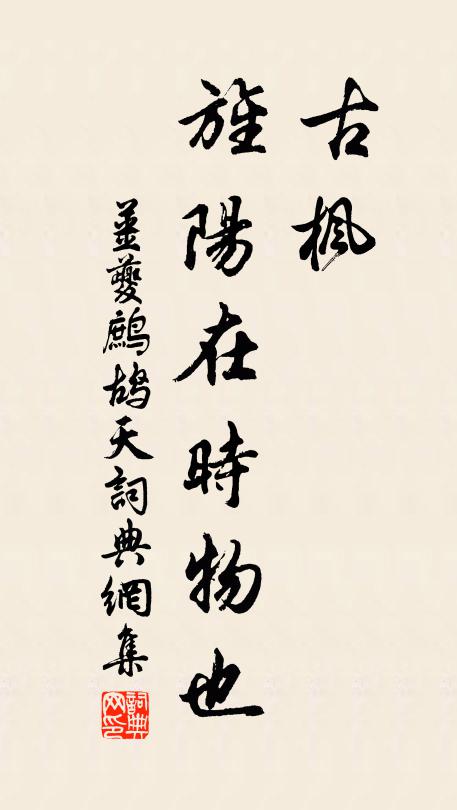 古楓
旌陽在時物也
薑夔鷓鴣天詞典網集
詞典
网印